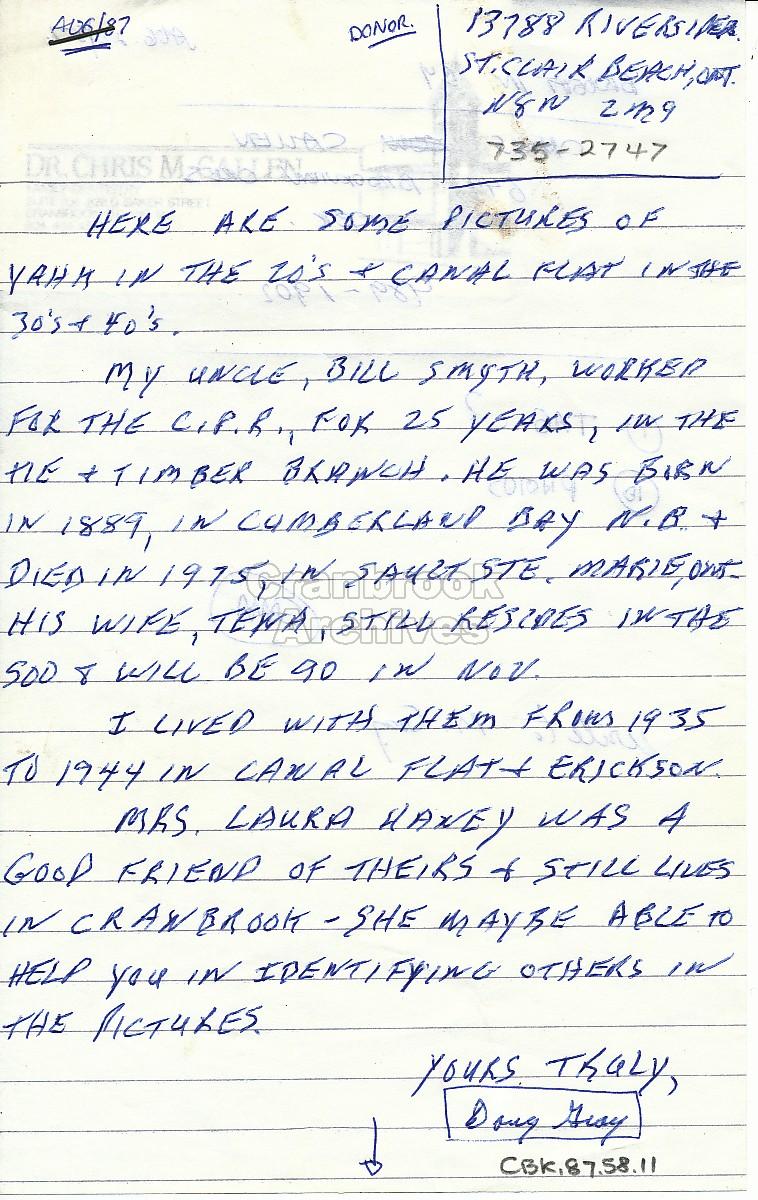 AUG/87
DONOR.
13788 RIVERSIDE
ST. CLAIR BEACH, ONT.
N8N 2M9
735-2747
DR. CHRIS M. CALLEN
HERE ARE SOME PICTURES OF
YAHK IN THE 20'S & CANAL FLAT IN THE
30'S & 40'S.
MY UNCLE, BILL SMYTH, WORKED
FOR THE C.P.R., FOR 25 YEARS, IN THE
TIE & TIMBER BRANCH. HE WAS BORN
IN 1889, IN CUMBERLAND BAY N.B. &
DIED IN 1975, IN SAULT STE. MARIE, ONT.
HIS WIFE, TENA, STILL RESIDES IN THE
SOO & WILL BE 90 IN NOV.
I LIVED WITH THEM FROM 1935
TO 1944 IN CANAL FLAT & ERICKSON.
MRS. LAURA HANEY WAS A
GOOD FRIEND OF THEIRS & STILL LIVES
IN CRANBROOK - SHE MAYBE ABLE TO
HELP YOU IN IDENTIFYING OTHERS IN
THE PICTURES.
YOURS TRULY,
Doug Gray
CBK.87.58.11
Cranbrook
Archives